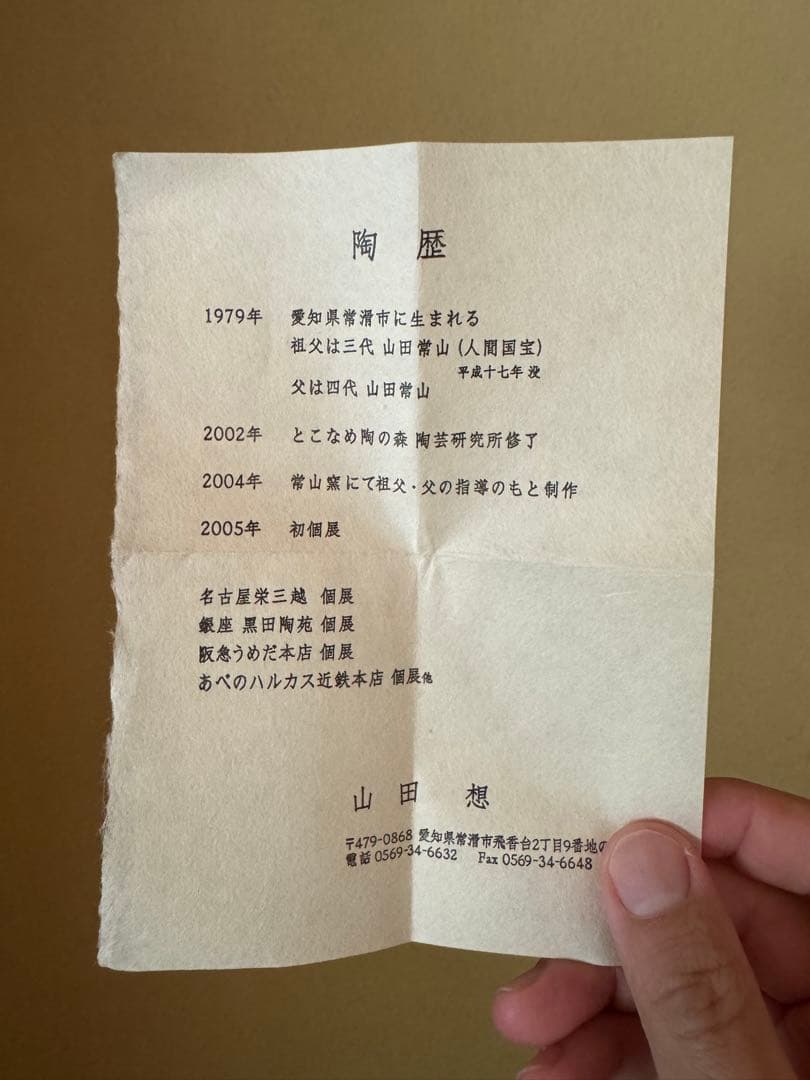 陶 歴
1979年 愛知県常滑市に生まれる
祖父は三代 山田常山 (人間国宝)
平成十七年 没
父は四代 山田常山
2002年 とこなめ陶の森 陶芸研究所修了
2004年 常山窯にて祖父・父の指導のもと制作
2005年 初個展
名古屋栄三越 個展
銀座 黒田陶苑 個展
阪急うめだ本店 個展
あべのハルカス近鉄本店 個展他
山田 想
〒479-0868 愛知県常滑市飛香台2丁目9番地の
電話 0569-34-6632 Fax 0569-34-6648